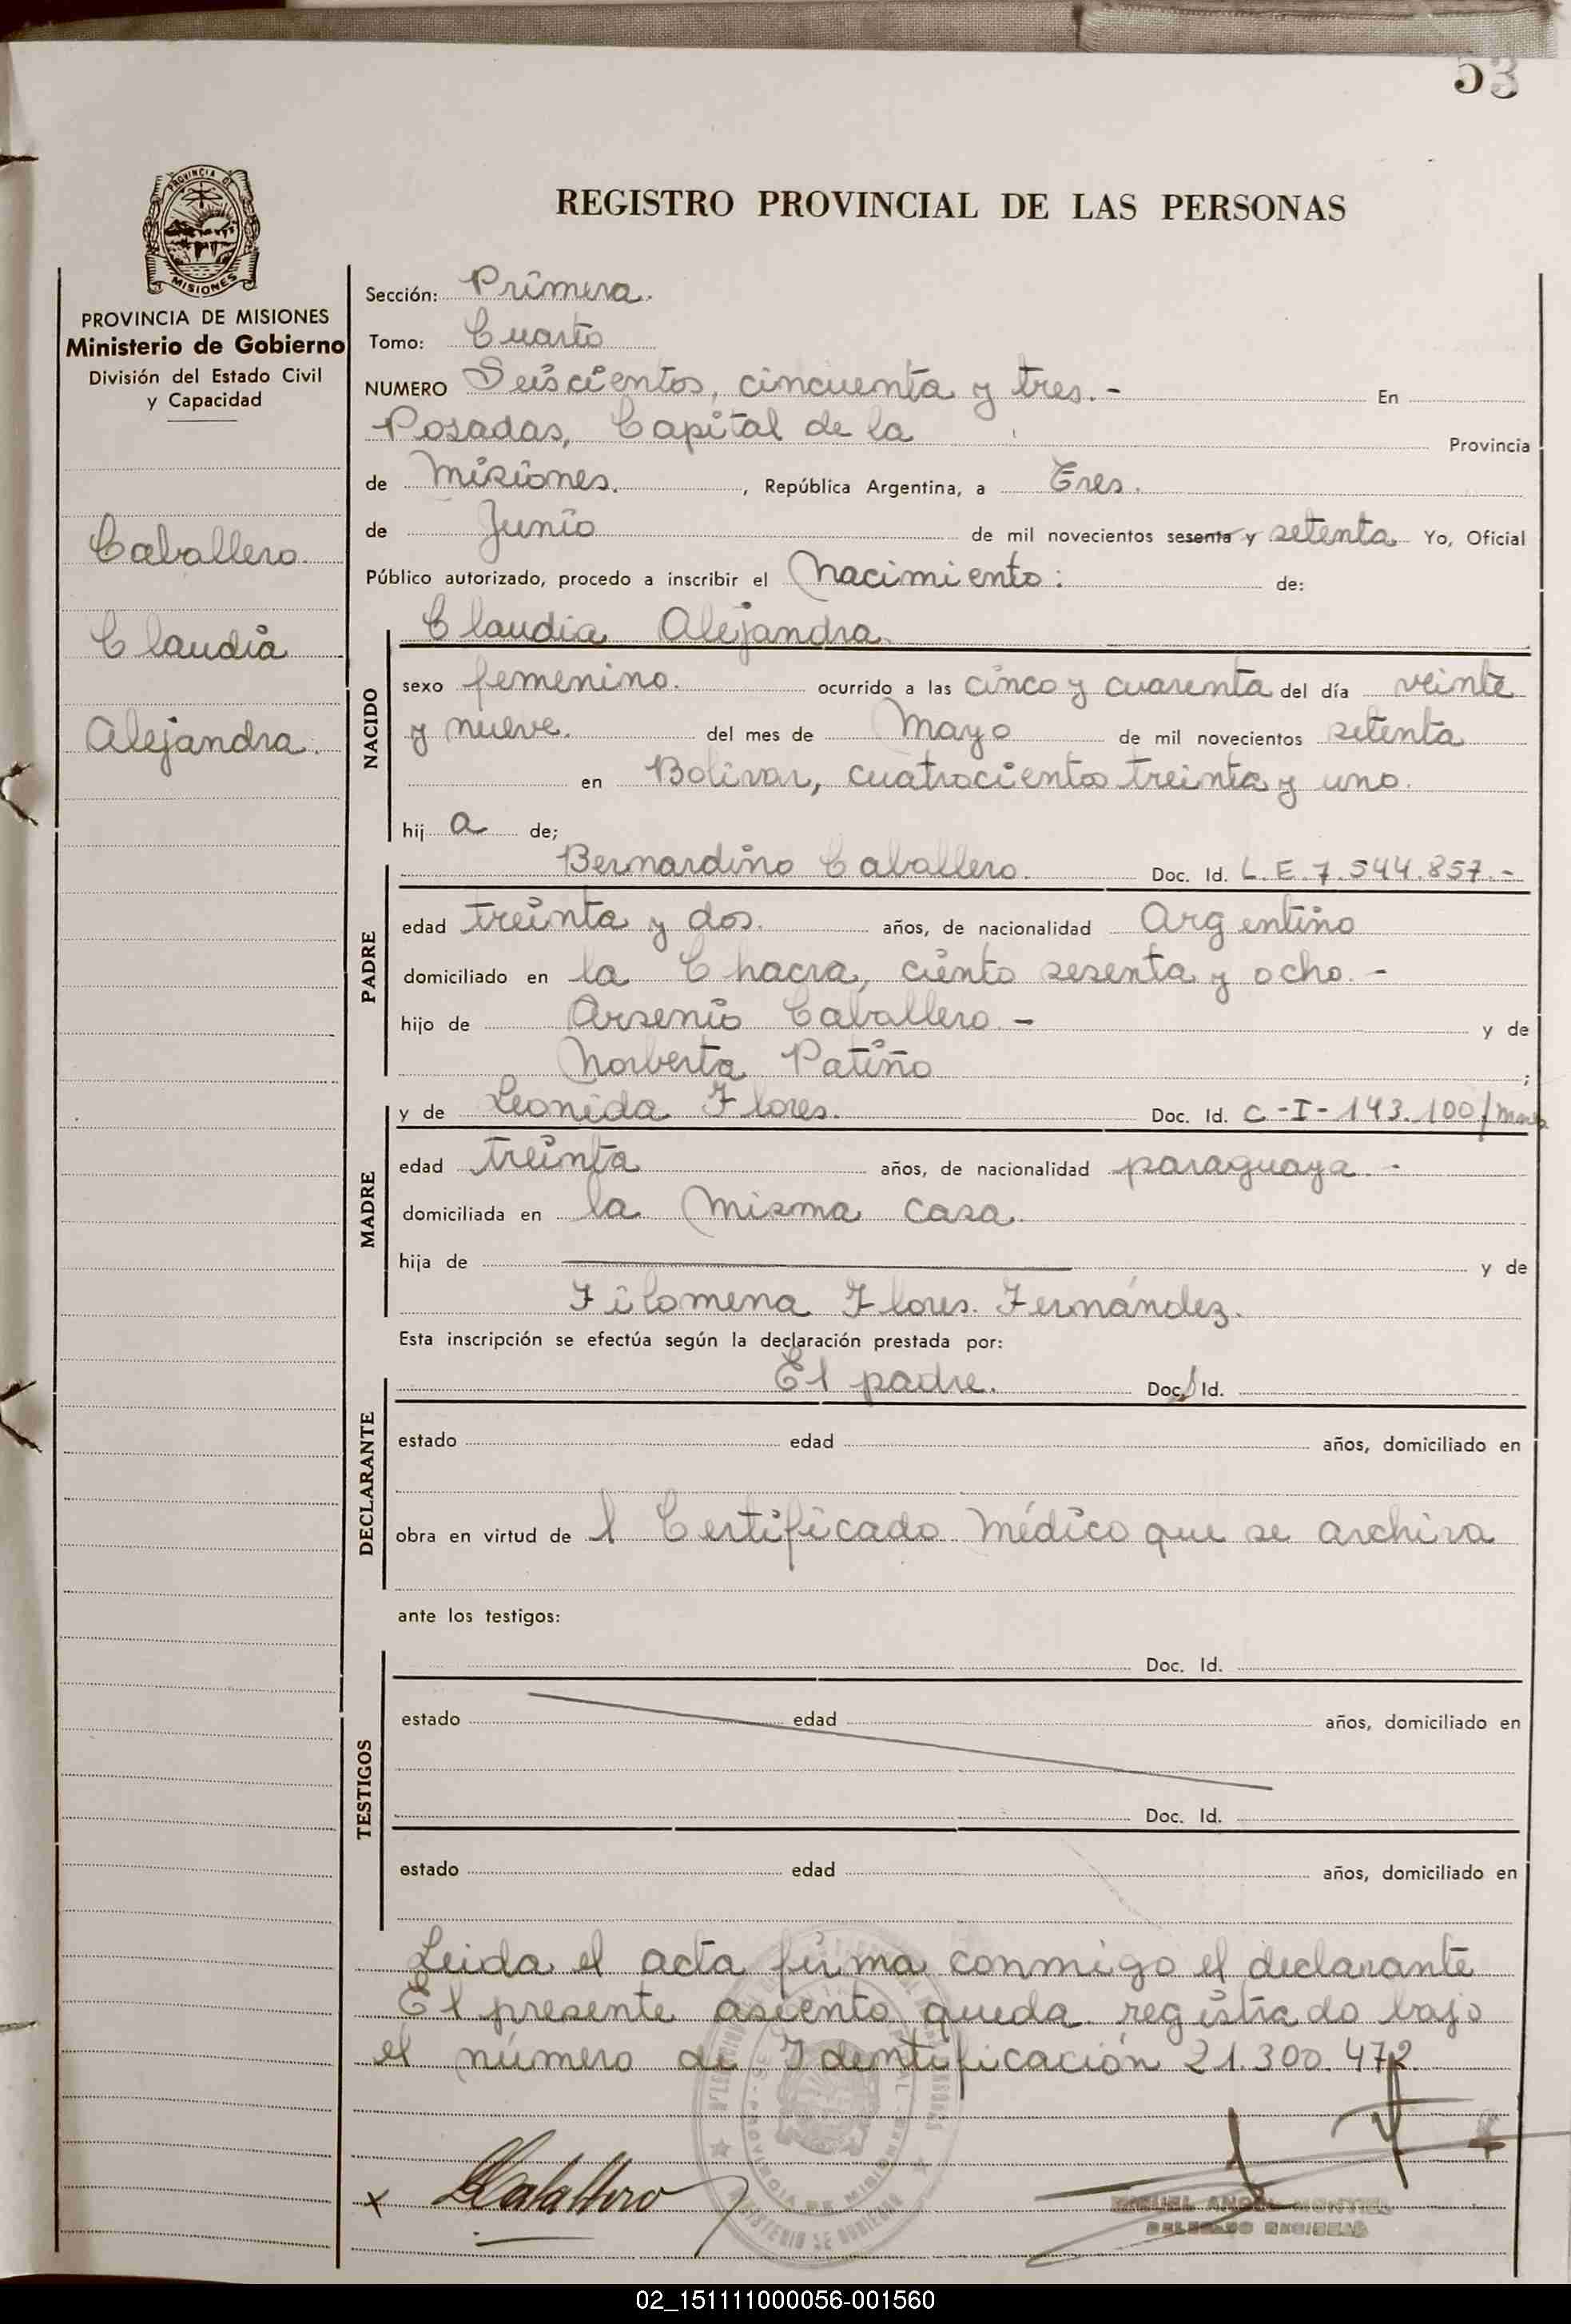 53
PROVINCIA DE
MISIONES
REGISTRO PROVINCIAL DE LAS PERSONAS
PROVINCIA DE MISIONES
Ministerio de Gobierno
División del Estado Civil
y Capacidad
Caballero.
Claudia
Alejandra.
Sección: Primera.
Tomo: Cuarto
NUMERO Seiscientos, cincuenta y tres.- En
Posadas, Capital de la Provincia
de Misiones. , República Argentina, a Tres.
de Junio de mil novecientos sesenta y setenta Yo, Oficial
Público autorizado, procedo a inscribir el Nacimiento: de:
NACIDO
Claudia Alejandra.
sexo femenino. ocurrido a las cinco y cuarenta del día veinte
y nueve. del mes de Mayo de mil novecientos setenta
en Bolivar, cuatrocientos treinta y uno.
hij a de;
PADRE
Bernardino Caballero. Doc. Id. L.E.7.544.857.-
edad treinta y dos. años, de nacionalidad Argentino
domiciliado en la Chacra, ciento sesenta y ocho.-
hijo de Arsenio Caballero.- y de
Norberta Patiño ;
MADRE
y de Leonida Flores. Doc. Id. C-I-143.100/
edad treinta años, de nacionalidad paraguaya.-
domiciliada en la misma casa.
hija de y de
Filomena Flores Fernández.
Esta inscripción se efectúa según la declaración prestada por:
DECLARANTE
El padre. Doc. Id.
estado edad años, domiciliado en
obra en virtud de l Certificado Médico que se archiva
ante los testigos:
TESTIGOS
Doc. Id.
estado edad años, domiciliado en
Doc. Id.
estado edad años, domiciliado en
Leida el acta firma conmigo el declarante
El presente asiento queda registrado bajo
el número de Identificación 21.300.472.
x Caballero
MIGUEL ANGEL MONTIEL
02_151111000056-001560